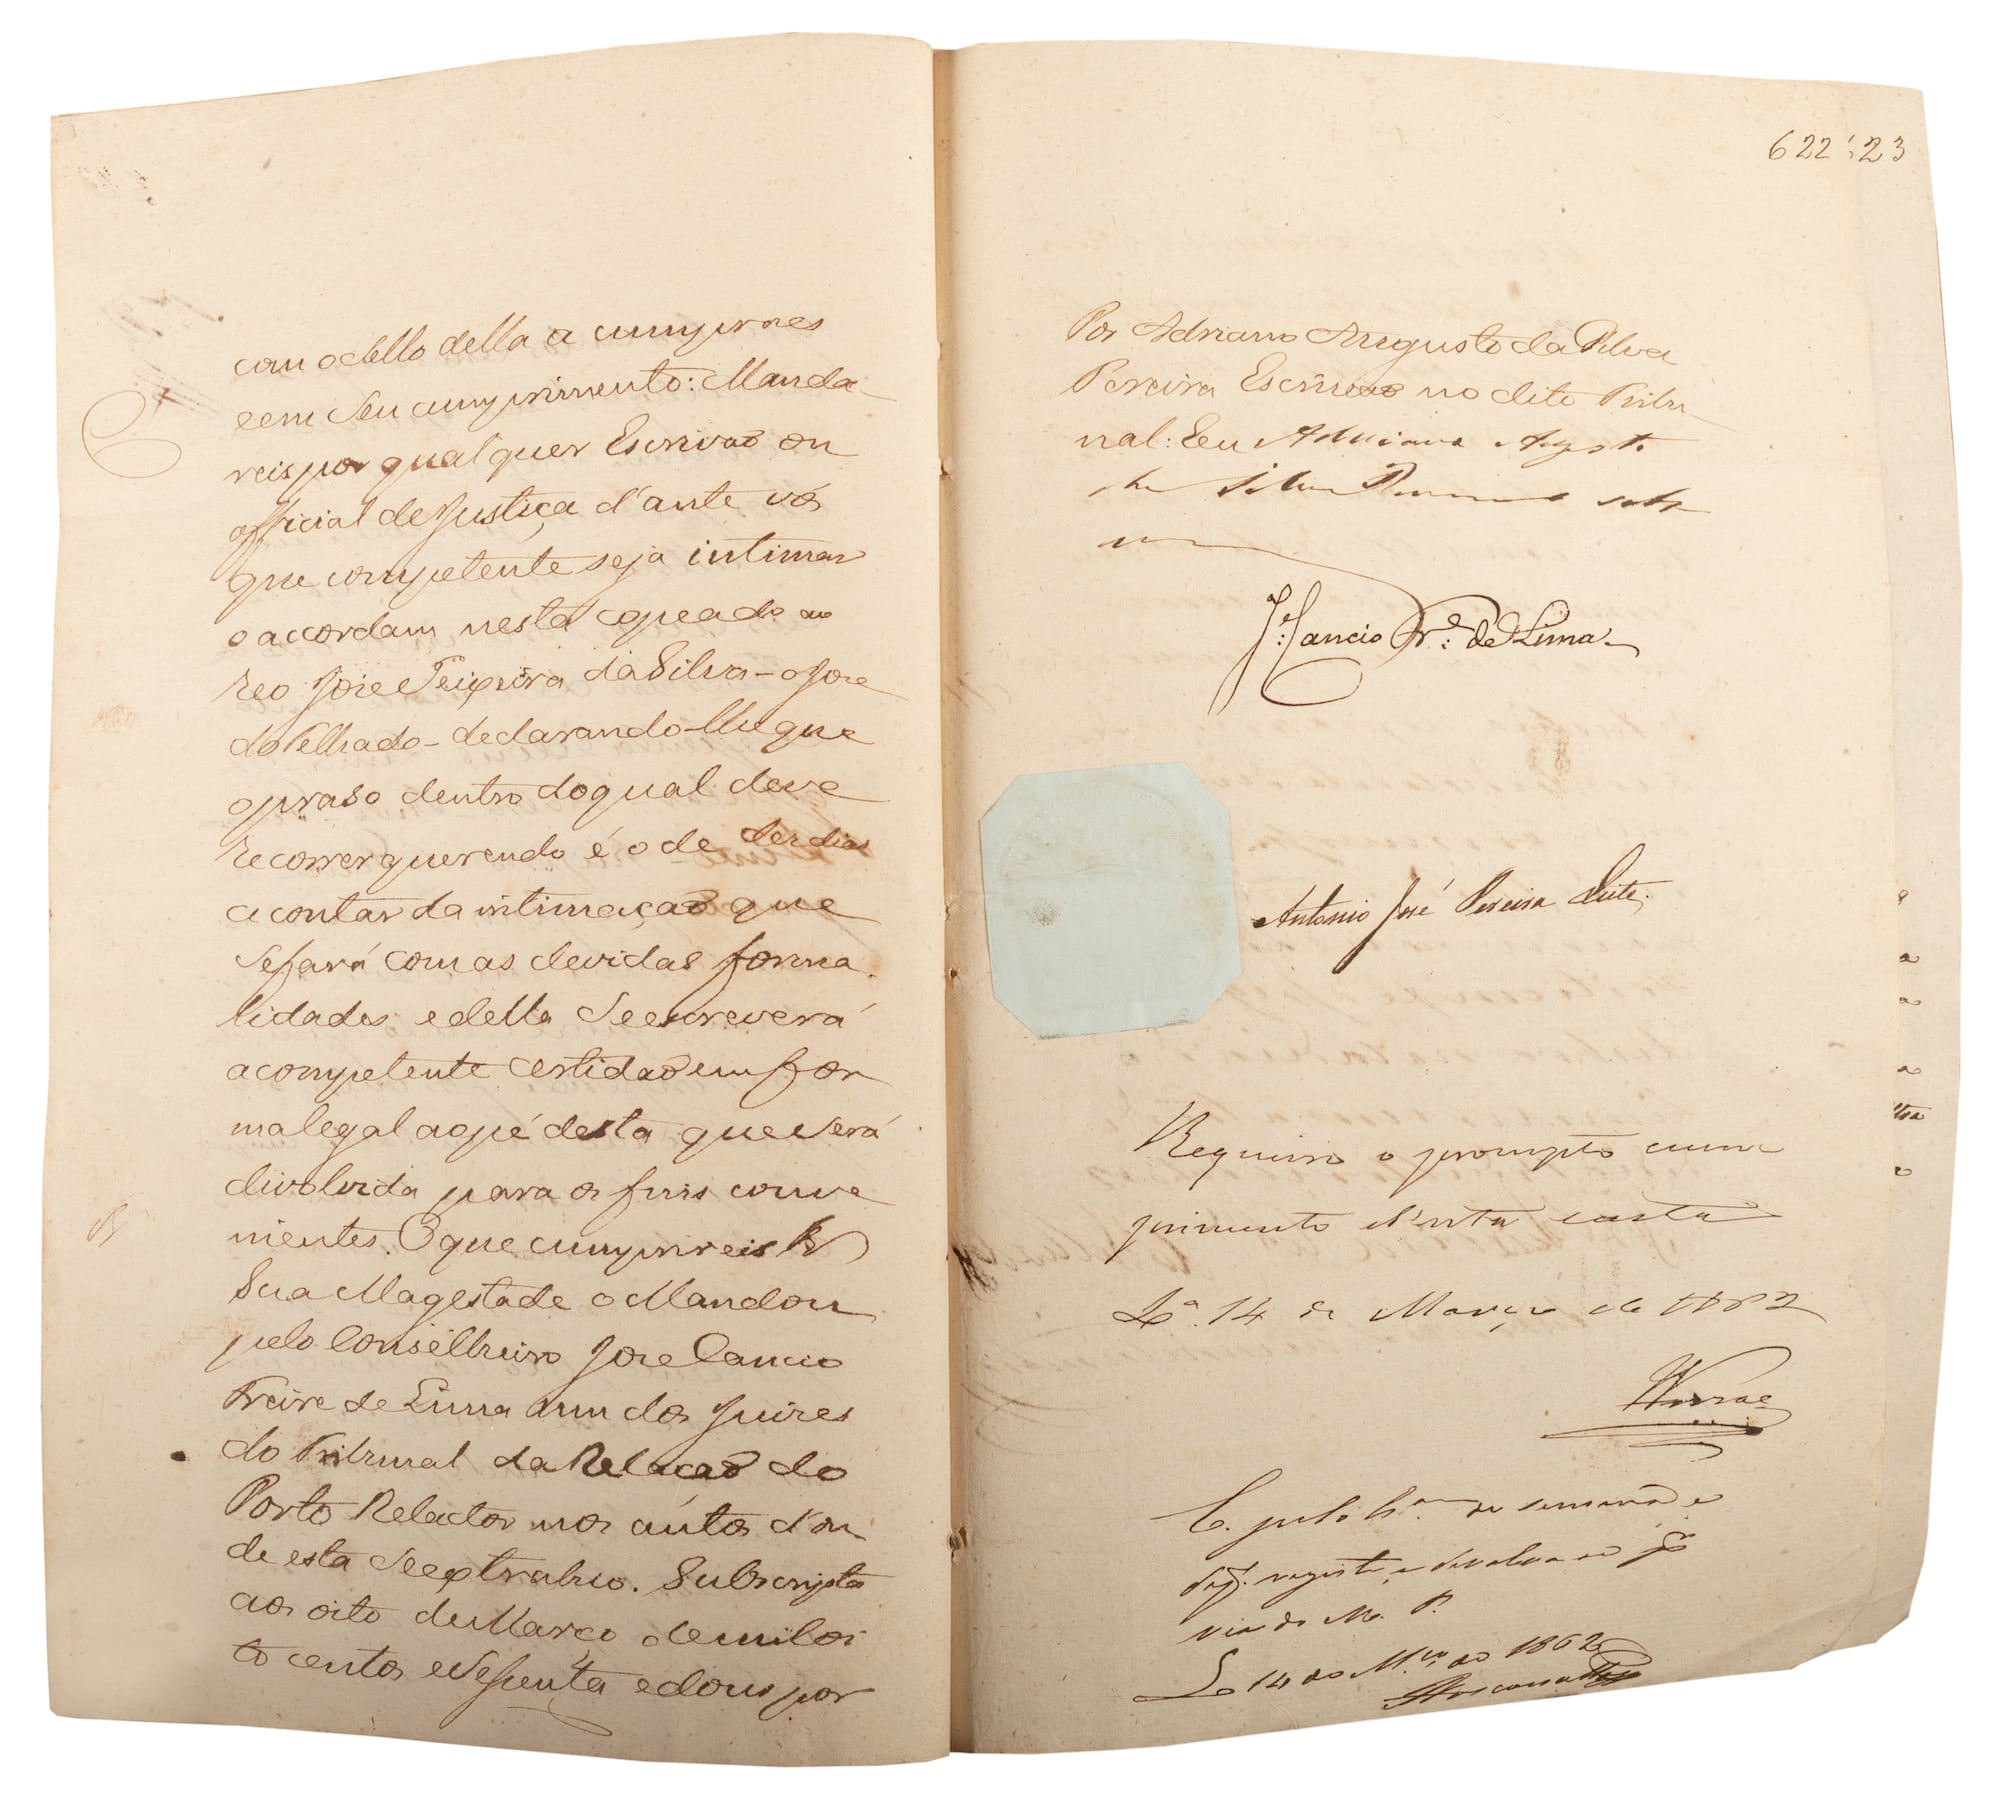 com o sello della a cumpraes
e em seu cumprimento: Manda
reis por qualquer Escrivaõ ou
official de Justiça d'ante vós
que competente seja intimar
o accordam nesta copeado ao
reo Jose Teixeira da Silva - o Jose
do Telhado - declarando-lhe que
o praso dentro do qual deve
recorrer querendo é o de dez dias
a contar da intimaçaõ que
se fará com as devidas forma
lidades e della se escreverá
a competente certidaõ em for
ma legal ao pé desta que será
divolvida para os fins conve
nientes. O que cumprireis
Sua Magestade o Mandou
pelo Conselheiro Jose Cancio
Freire de Lima hum dos Juizes
do Tribunal da Relaçaõ do
Porto Relactor nos autos d'on
de esta se extrahio. Subscripta
aos oito de Março de mil oi
to centos e sessenta e dous por
622 23
Por Adriano Augusto da Silva
Pereira Escrivaõ no dito Tribu
nal: E eu Adriano Agusto
da Silva Pereira sobs
Je. Cancio Fr.e de Lima
Antonio José Pereira Leite
Requeiro o prompto cum
primento d'esta carta
La. 14 de Março de 1862
C. pelo de semana e
registe, e devolva ao
via do M. P.
La 14 de M.ço de 1862